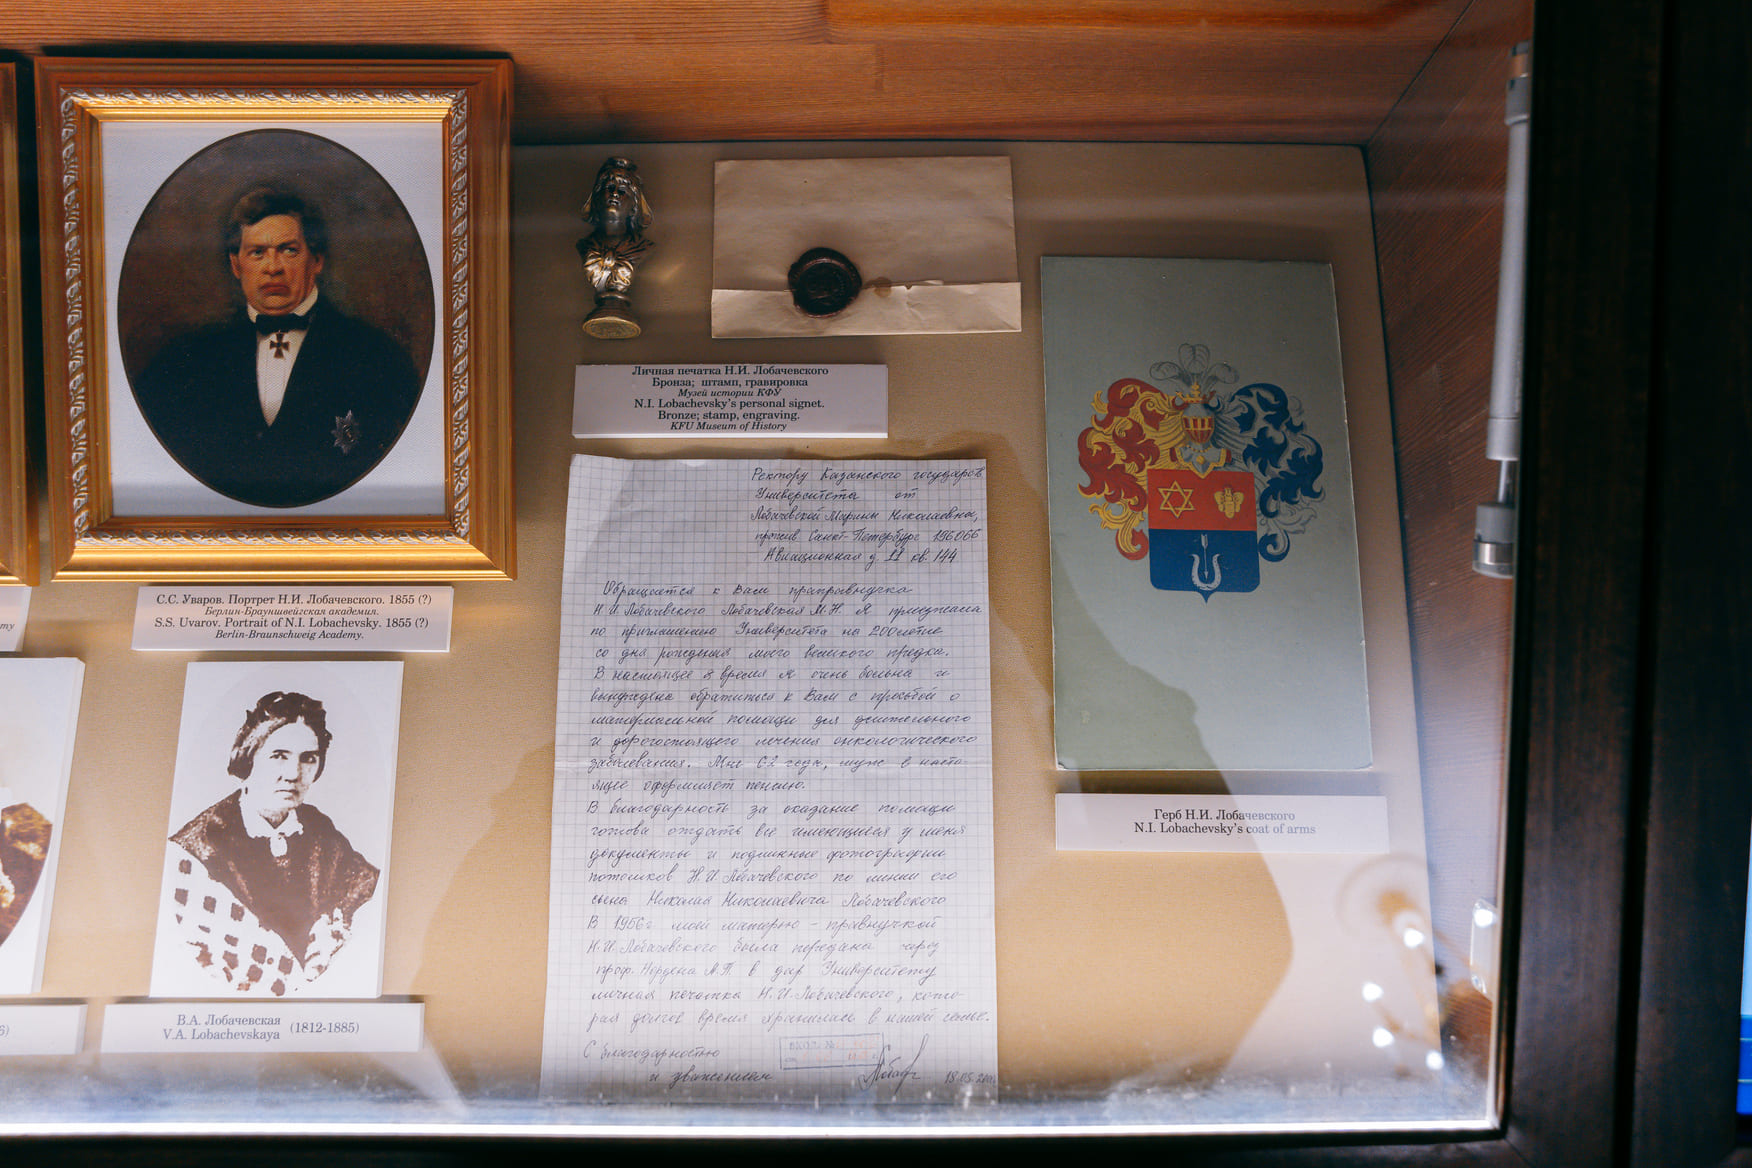 С.С. Уваров. Портрет Н.И. Лобачевского. 1855 (?)
Берлин-Брауншвейгская академия.
S.S. Uvarov. Portrait of N.I. Lobachevsky. 1855 (?)
Berlin-Braunschweig Academy.
В.А. Лобачевская
V.A. Lobachevskaya (1812-1885)
Личная печатка Н.И. Лобачевского
Бронза; штамп, гравировка
Музей истории КФУ
N.I. Lobachevsky's personal signet.
Bronze; stamp, engraving.
KFU Museum of History
Ректору Казанского государств
Университета от
Лобачевской Марины Николаевны,
прожив Санкт-Петербург 196066
Авиационная д. 11 кв. 144
Обращается к Вам праправнучка
Н.И. Лобачевского Лобачевская М.Н. Я приезжала
по приглашению Университета на 200летие
со дня рождения моего великого предка.
В настоящее время я очень больна и
вынуждена обратиться к Вам с просьбой о
материальной помощи для длительного
и дорогостоящего лечения онкологического
заболевания. Мне 62 года, муж в насто-
ящее оформляет пенсию.
В благодарность за оказание помощи
готова отдать все имеющиеся у меня
документы и подлинные фотографии
потомков Н.И. Лобачевского по линии его
сына Николая Николаевича Лобачевского
В 1956г моей матерью - правнучкой
Н.И. Лобачевского была передана через
проф. Нордена А.П. в дар Университету
личная печатка Н.И. Лобачевского, кото-
рая долгое время хранилась в нашей семье.
С благодарностью
и уважением
ВХОД. №
18.05.
Герб Н.И. Лобачевского
N.I. Lobachevsky's coat of arms